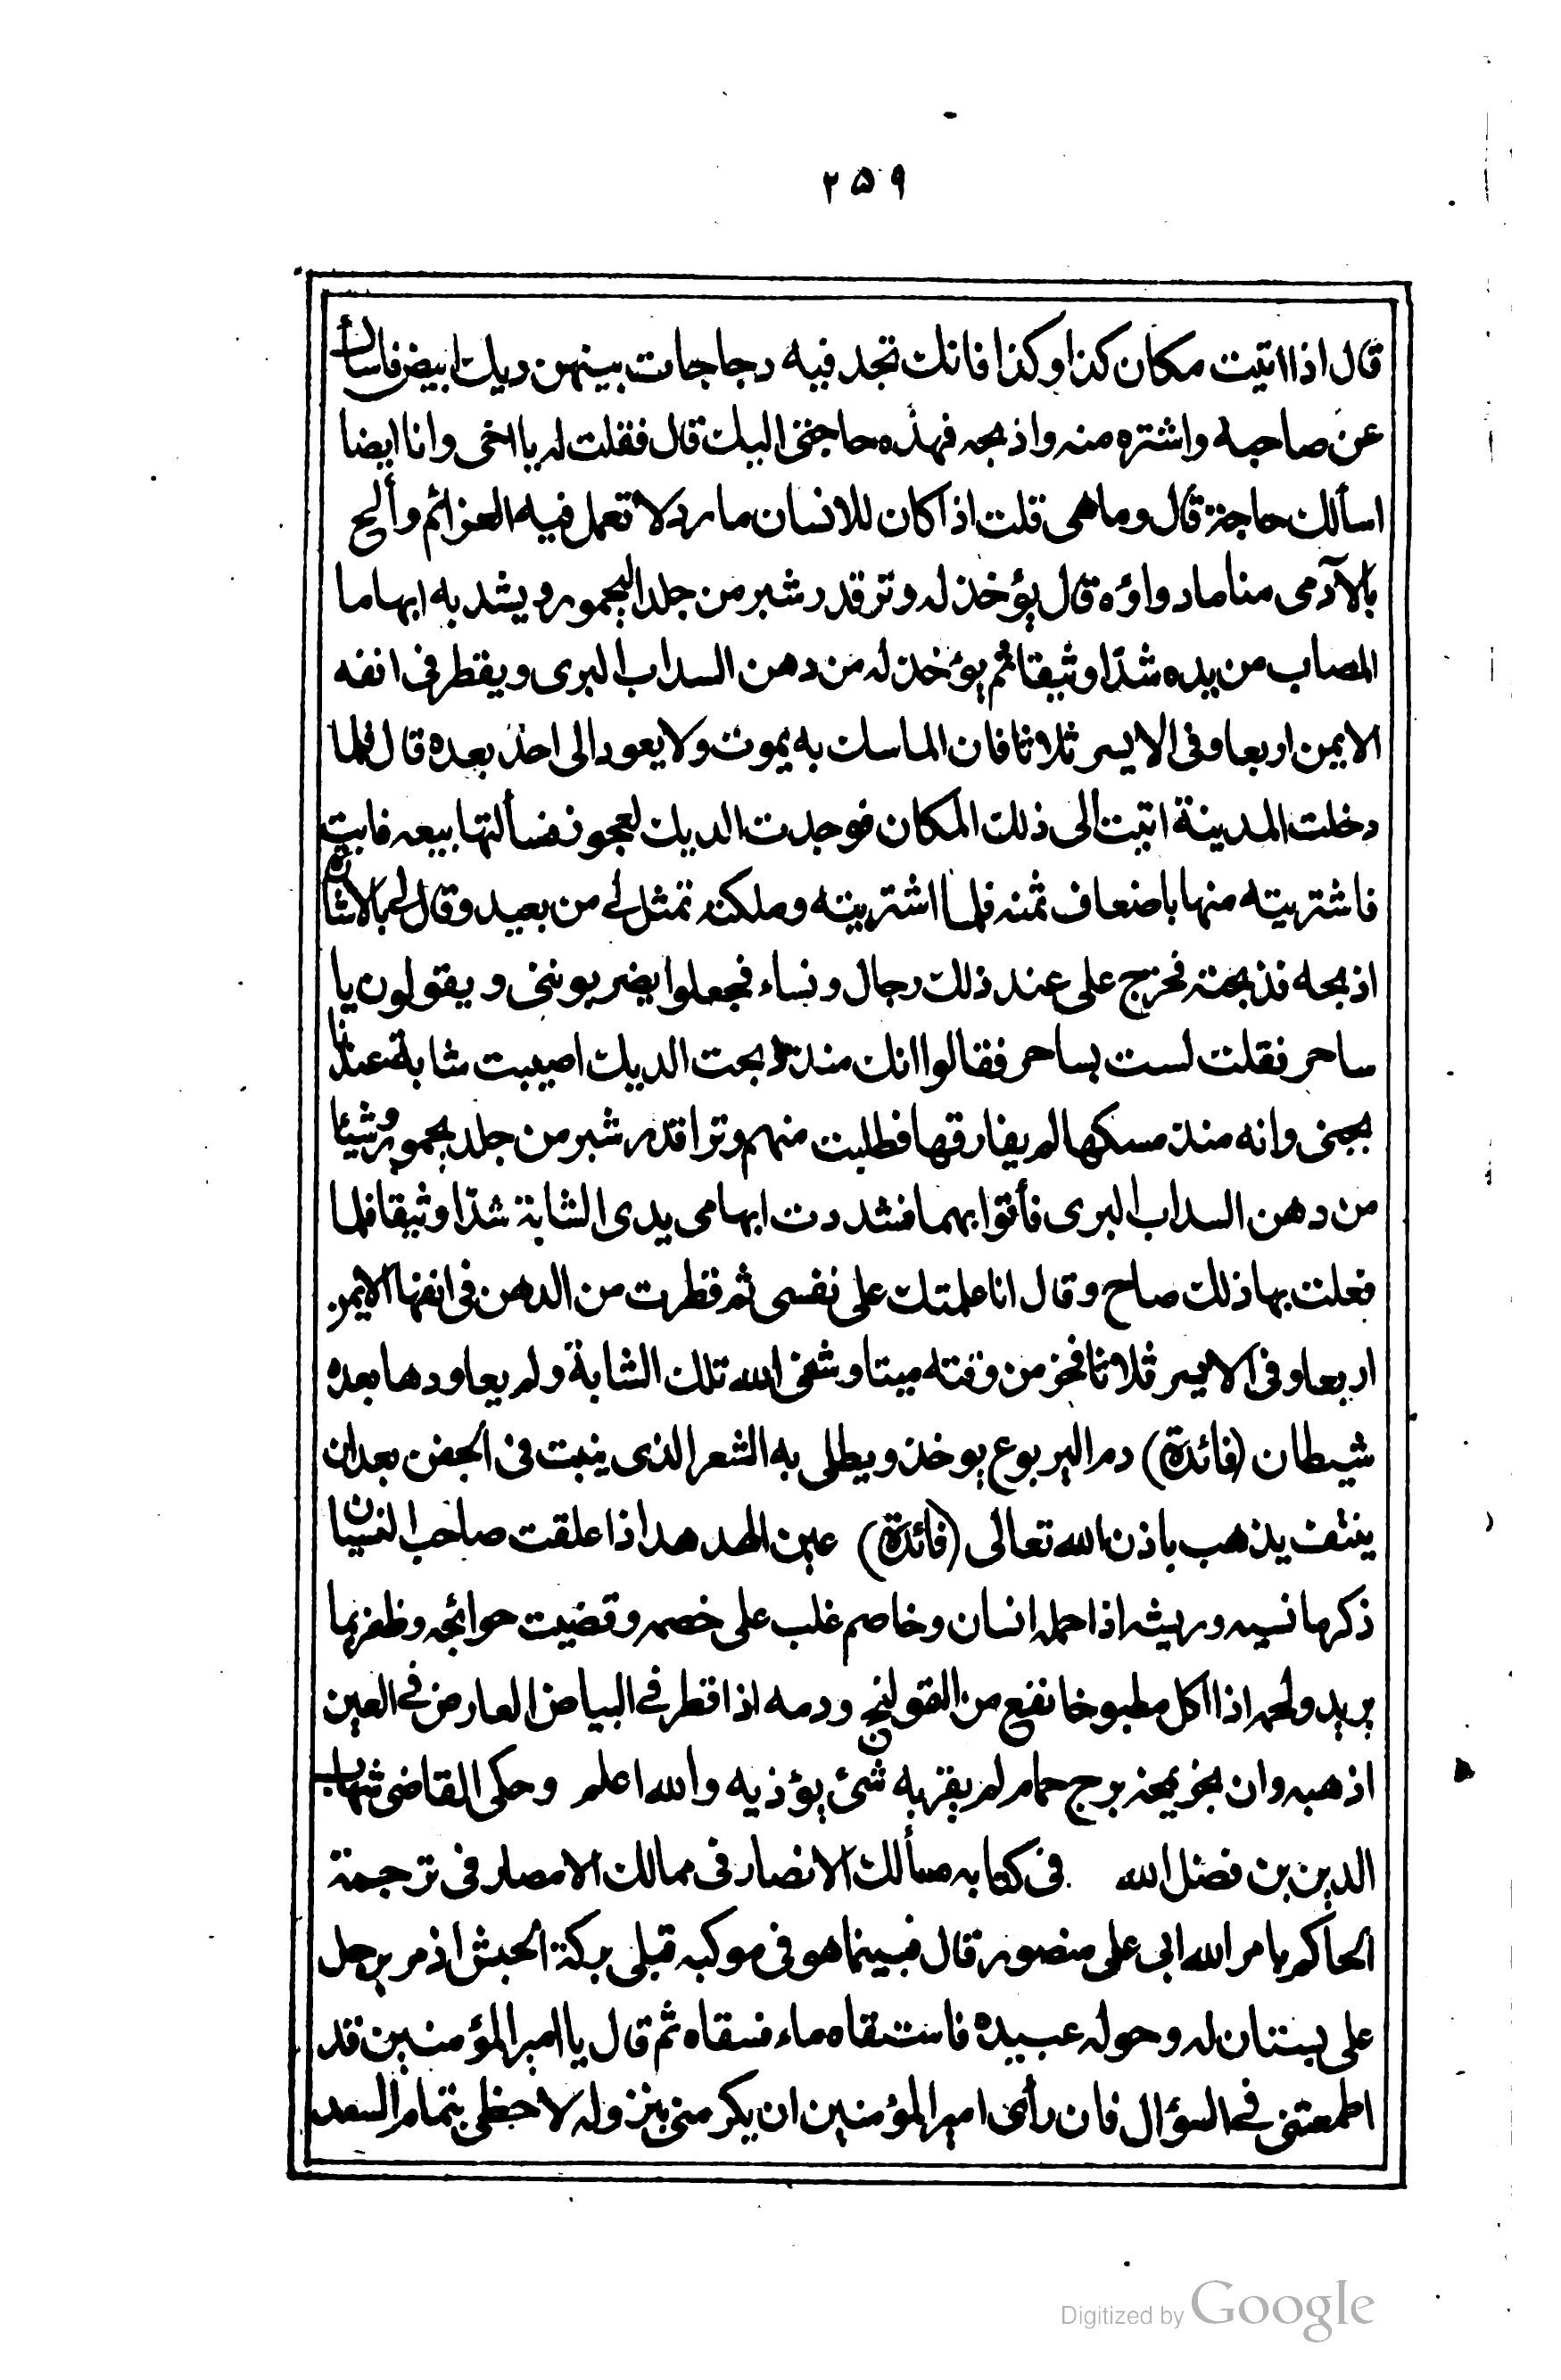 ٢٥٩
قال اذا اتيت مكان كذا وكذا فانك تجد فيه دجاجات بينهن ديك ابيض فاسأل
عن صاحبه واشتره منه واذبحه فهذه حاجتى اليك قال فقلت له يا اخى وانا ايضا
اسألك حاجة قال وما هى قلت اذا كان للانسان مارد لا تعمل فيه العزائم وألح
بالآدمى منا ما دواؤه قال يؤخذ له وتر قدر شبر من جلد اليحمور ويشد به ابهاما
المصاب من يده شدّا وثيقا ثم يؤخذ له من دهن السداب البرى ويقطر فى انفه
الايمن اربعا وفى الايسر ثلاثا فان الماسك به يموت ولا يعود الى احد بعده قال فلما
دخلت المدينة اتيت الى ذلك المكان فوجدت الديك لعجوز فسألتها بيعه فابت
فاشتريته منها باضعاف ثمنه فلما اشتريته وملكته تمثل لى من بعيد وقال لى بالاشارة
اذبحه فذبحته فخرج على عند ذلك رجال ونساء فجعلوا يضربوننى ويقولون يا
ساحر فقلت لست بساحر فقالوا انك منذ ذبحت الديك اصيبت شابة عندنا
بجنى وانه منذ مسكها لم يفارقها فطلبت منهم وترا قدر شبر من جلد يحمور وشيئا
من دهن السداب البرى فأتوا بهما فشددت ابهامى يدى الشابة شدّا وثيقا فلما
فعلت بها ذلك صاح وقال انا علمتك على نفسى ثم قطرت من الدهن فى انفها الايمن
اربعا وفى الايسر ثلاثا فخر من وقته ميتا وشفى الله تلك الشابة ولم يعاودها بعده
شيطان (فائدة) دم اليربوع يوخذ ويطلى به الشعر الذى ينبت فى الجفن بعد ان
ينتف يذهب باذن الله تعالى (فائدة) عين الهدهد اذا علقت صاحب النسيان
ذكر ما نسيه وريشه اذا حمله انسان وخاصم غلب على خصمه وقضيت حوائجه وظفر بما
يريد ولحمه اذا اكل مطبوخا نفع من القولنج ودمه اذا قطر فى البياض العارض فى العين
اذهبه وان بخر بمخه برج حمام لم يقربه شئ يؤذيه والله اعلم وحكى القاضى شهاب
الدين بن فضل الله فى كتابه مسألك الانصار فى ممالك الامصار فى ترجمة
الحاكم بامر الله ابى على منصور قال فبينما هو فى موكبه قبلى بركة الحبش اذ مر برجل
على بستان له وحوله عبيده فاستسقاه ماء فسقاه ثم قال يا امير المؤمنين قد
اطمعتنى فى السؤال فان رأى امير المؤمنين ان يكرمنى بنزوله لاحظى بتمام السعد
Digitized by Google